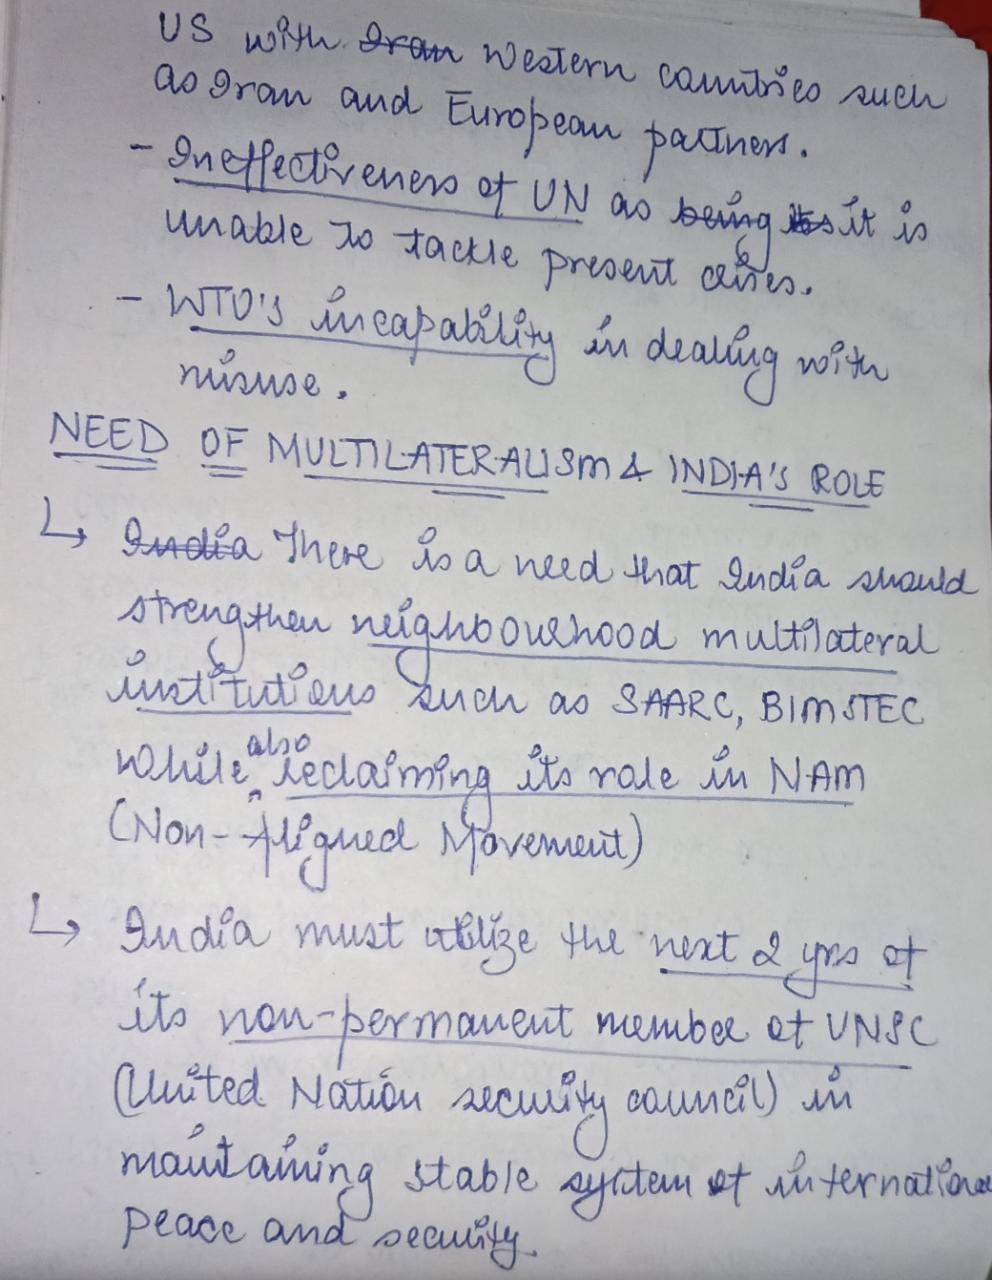 US with Iran Western countries such
as Iran and European partners.
- Ineffectiveness of UN as being its it is
unable to tackle present crises.
- WTO's incapability in dealing with
misuse.
NEED OF MULTILATERALISM & INDIA'S ROLE
↳ India There is a need that India should
strengthen neighbourhood multilateral
institutions such as SAARC, BIMSTEC
while also reclaiming its role in NAM
(Non-Aligned Movement)
↳ India must utilize the next 2 yrs of
its non-permanent member of UNSC
(United Nation security council) in
maintaining stable system of international
peace and security.